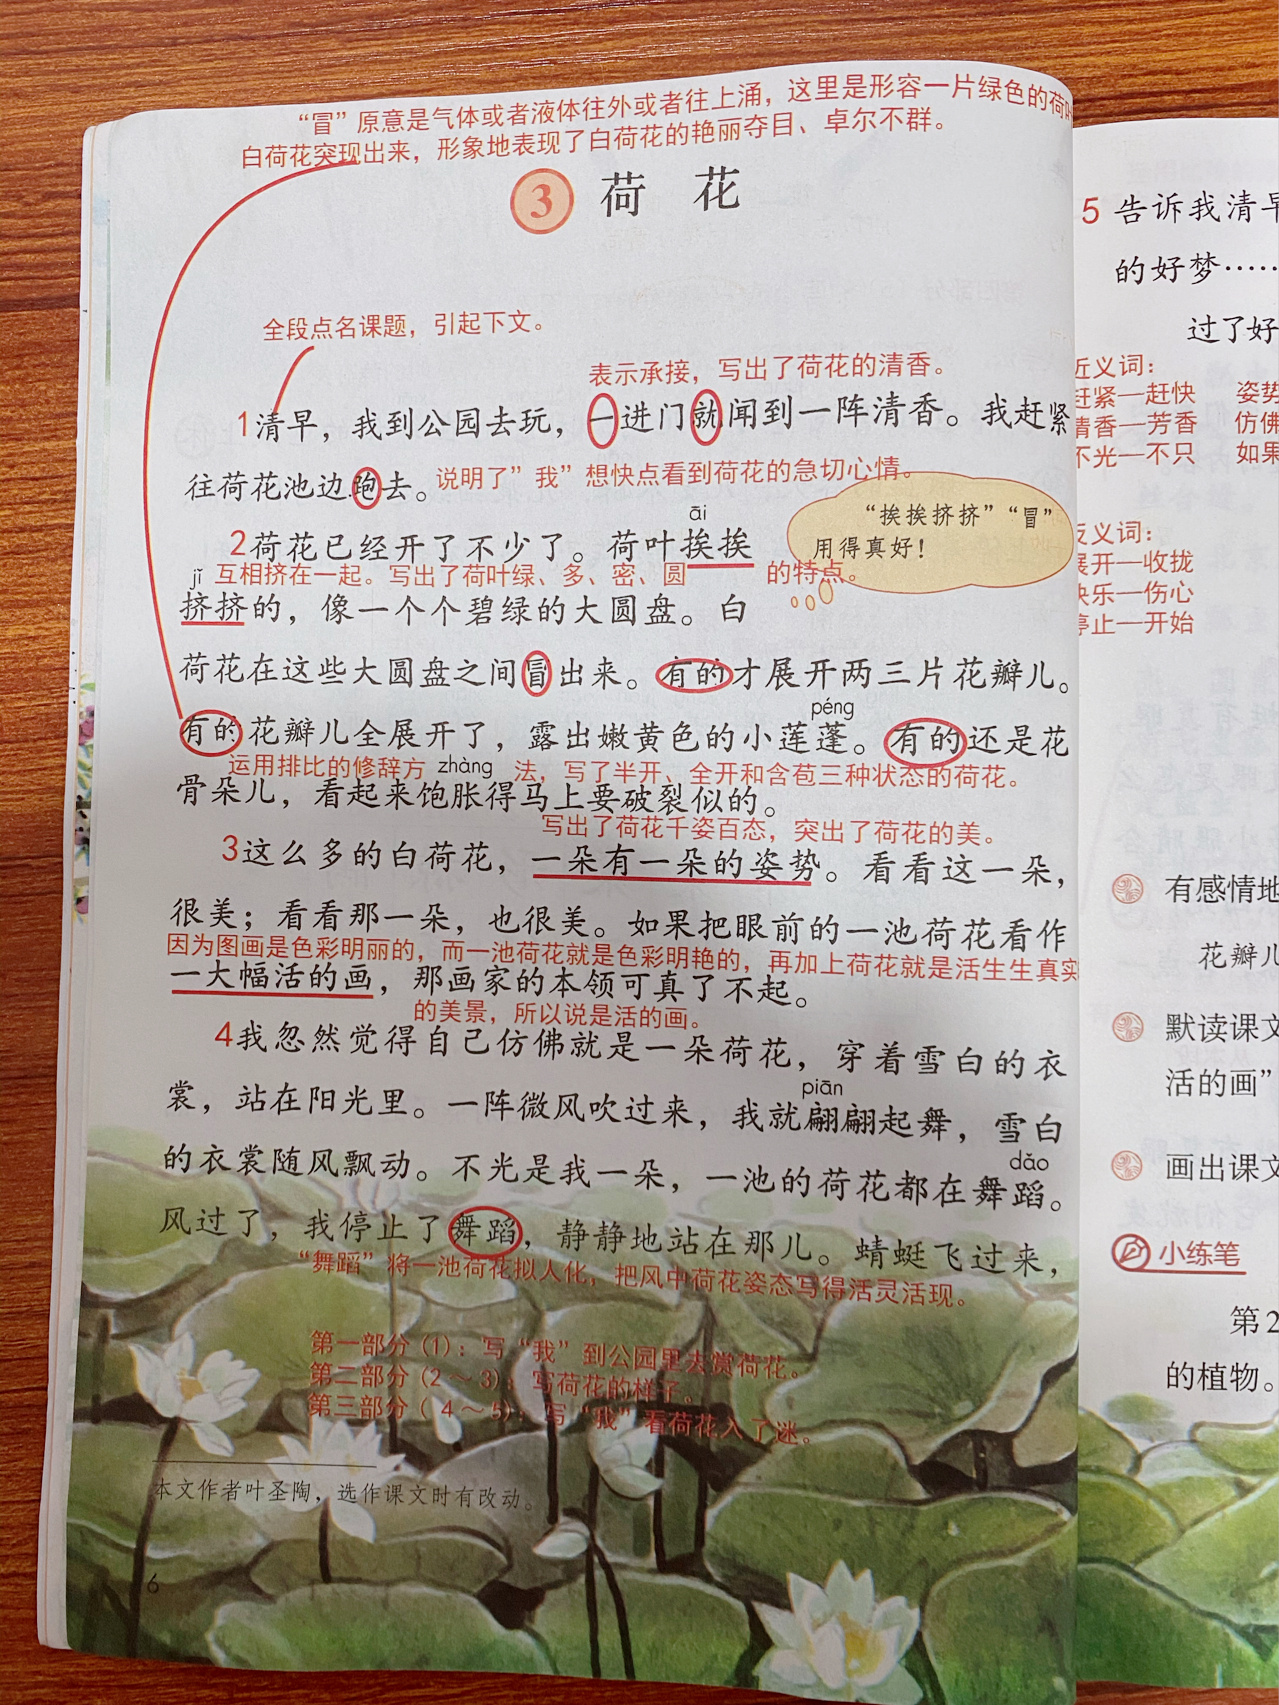 “冒”原意是气体或者液体往外或者往上涌，这里是形容一片绿色的荷叶
白荷花突现出来，形象地表现了白荷花的艳丽夺目、卓尔不群。
3 荷 花
全段点名课题，引起下文。
表示承接，写出了荷花的清香。
1清早，我到公园去玩，一进门就闻到一阵清香。我赶紧
往荷花池边跑去。说明了”我”想快点看到荷花的急切心情。
āi
“挨挨挤挤”“冒”
用得真好！
2荷花已经开了不少了。荷叶挨挨
jǐ 互相挤在一起。写出了荷叶绿、多、密、圆 的特点。
挤挤的，像一个个碧绿的大圆盘。白
荷花在这些大圆盘之间冒出来。有的才展开两三片花瓣儿。
péng
有的花瓣儿全展开了，露出嫩黄色的小莲蓬。有的还是花
运用排比的修辞方 zhàng 法，写了半开、全开和含苞三种状态的荷花。
骨朵儿，看起来饱胀得马上要破裂似的。
写出了荷花千姿百态，突出了荷花的美。
3这么多的白荷花，一朵有一朵的姿势。看看这一朵，
很美；看看那一朵，也很美。如果把眼前的一池荷花看作
因为图画是色彩明丽的，而一池荷花就是色彩明艳的，再加上荷花就是活生生真实
一大幅活的画，那画家的本领可真了不起。
的美景，所以说是活的画。
4我忽然觉得自己仿佛就是一朵荷花，穿着雪白的衣
piān
裳，站在阳光里。一阵微风吹过来，我就翩翩起舞，雪白
的衣裳随风飘动。不光是我一朵，一池的荷花都在舞蹈。
dǎo
风过了，我停止了舞蹈，静静地站在那儿。蜻蜓飞过来，
“舞蹈”将一池荷花拟人化，把风中荷花姿态写得活灵活现。
第一部分（1）：写“我”到公园里去赏荷花。
第二部分（2～3）：写荷花的样子。
第三部分（4～5）：写“我”看荷花入了迷。
本文作者叶圣陶，选作课文时有改动。
6
5 告诉我清早
的好梦……
过了好
近义词：
赶紧—赶快 姿势
清香—芳香 仿佛
不光—不只 如果
反义词：
展开—收拢
快乐—伤心
停止—开始
有感情地
花瓣儿
默读课文
活的画”
画出课文
小练笔
第2
的植物。